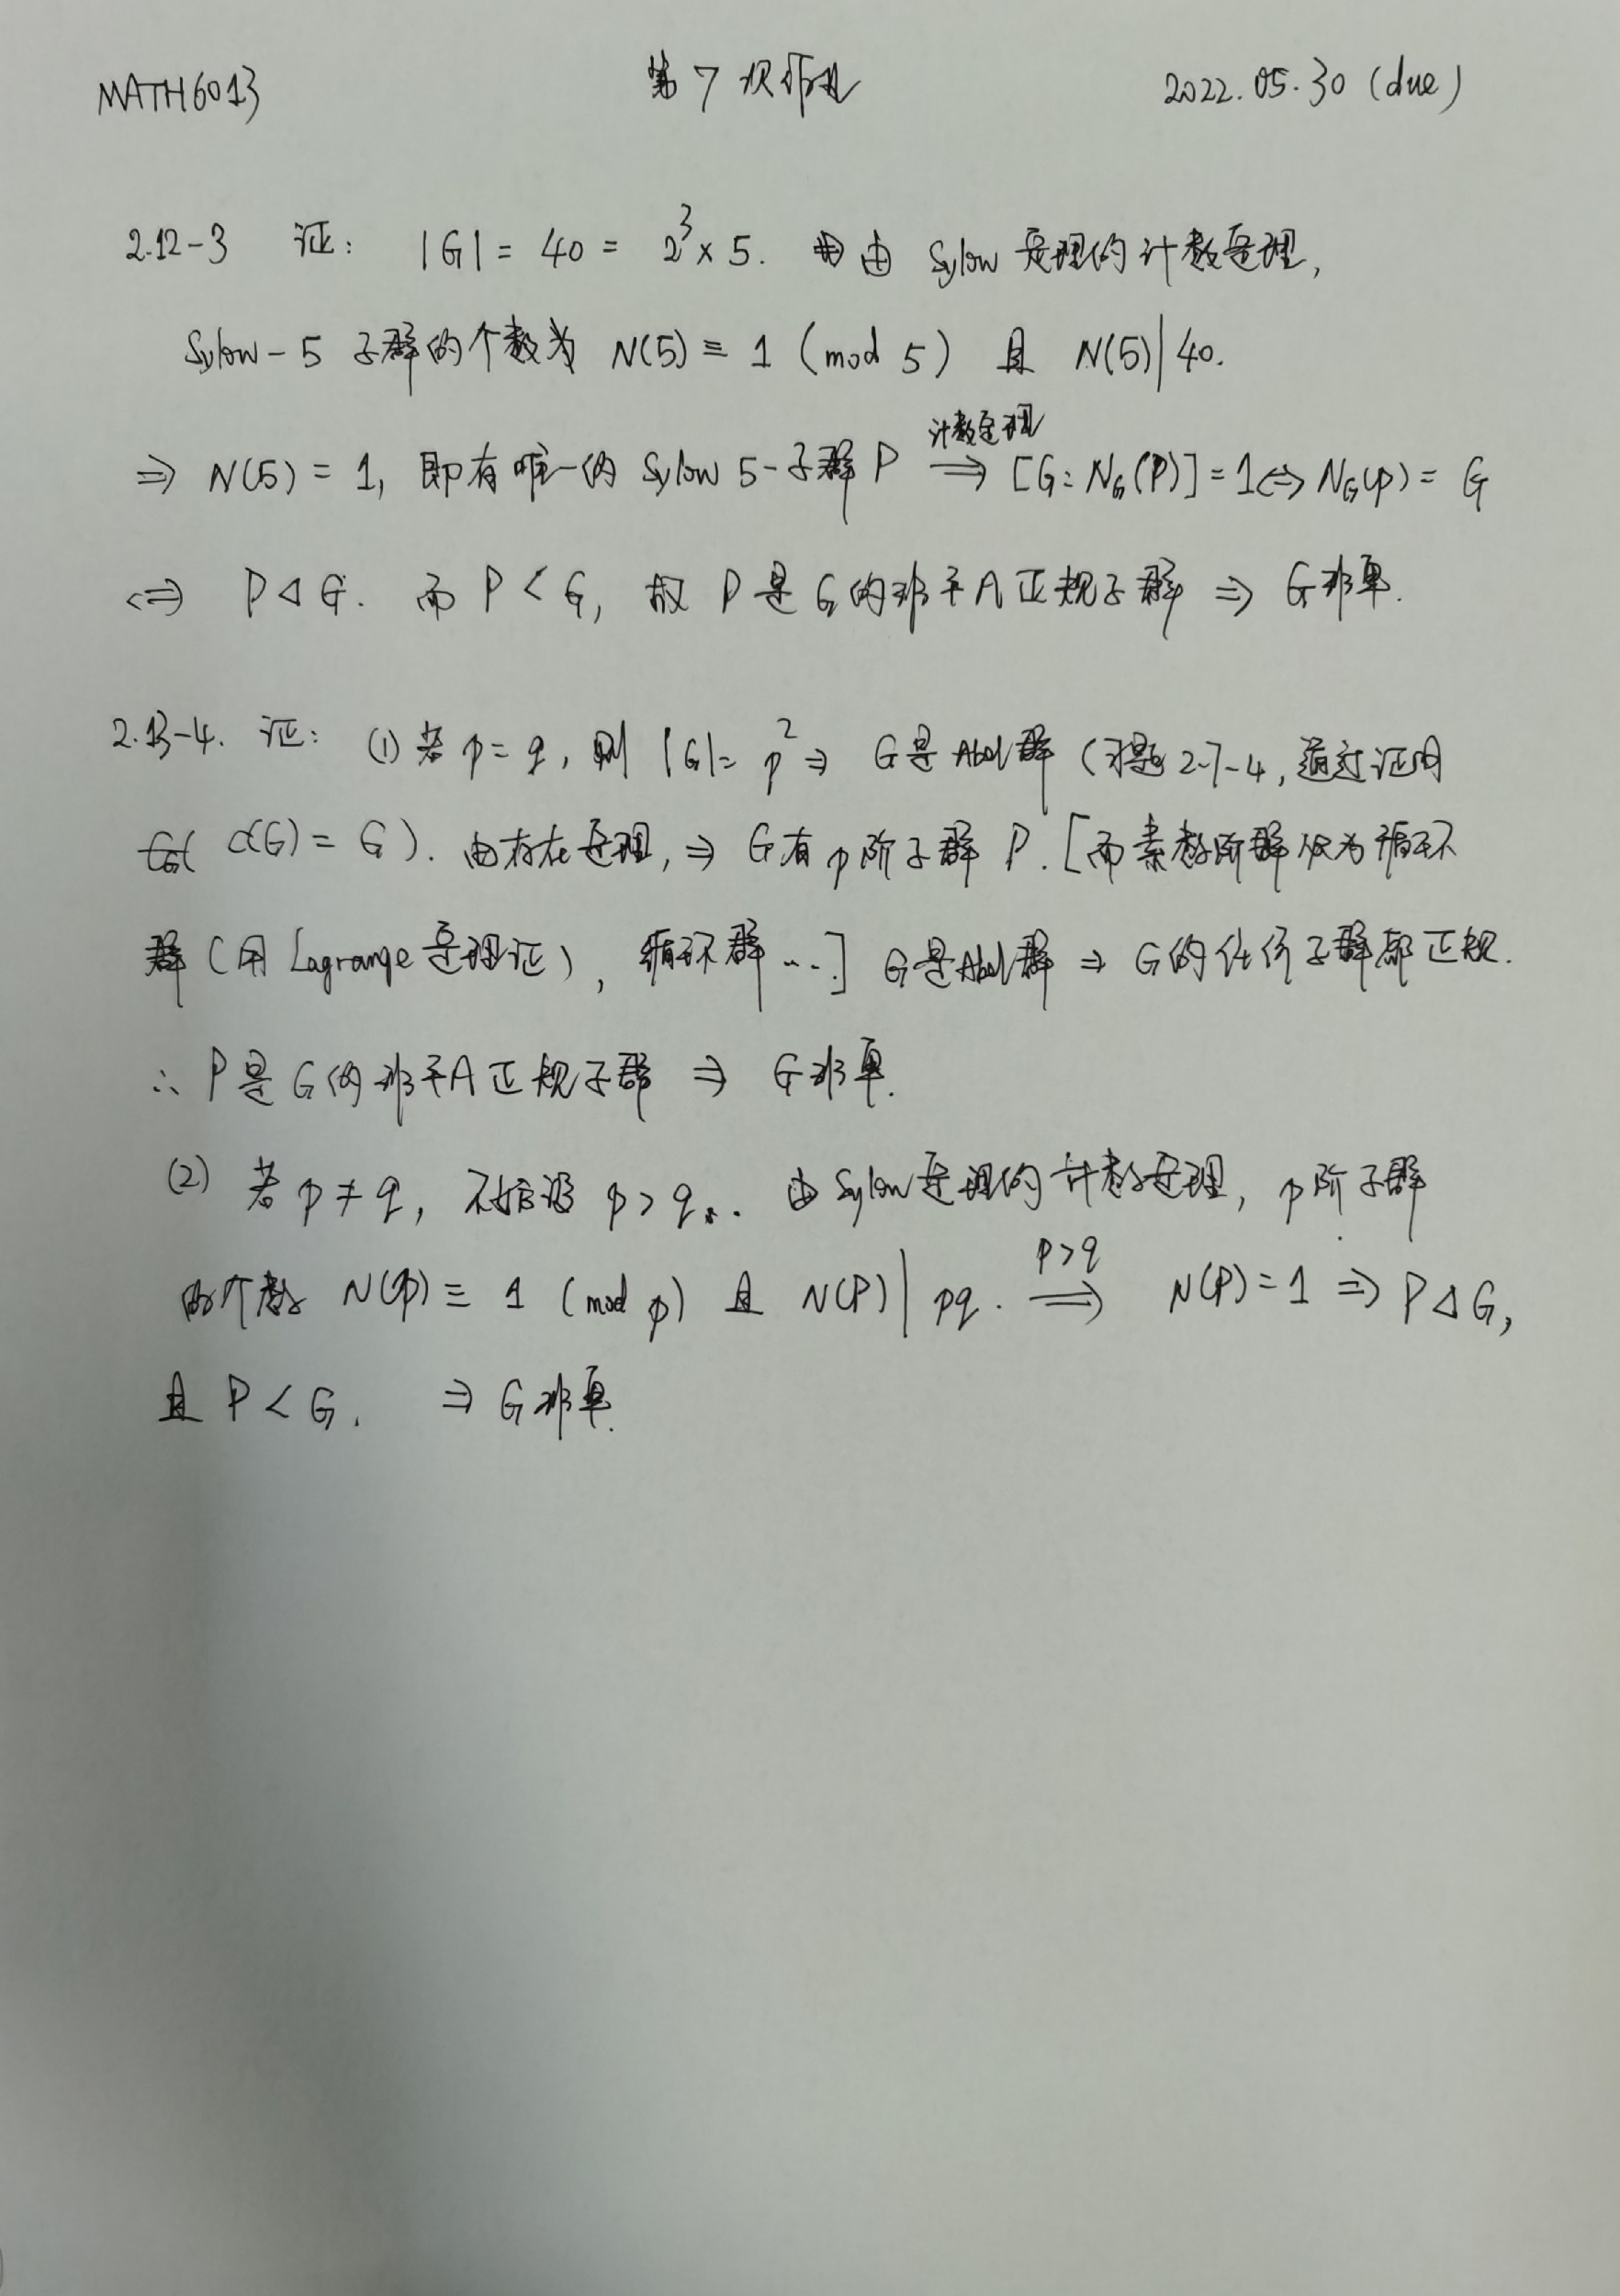 MATH6013 第7次作业 2022.05.30 (due)
2.12-3 证: |G| = 40 = 2³×5. 由 Sylow 定理的计数定理,
Sylow-5 子群的个数为 N(5) ≡ 1 (mod 5) 且 N(5)|40.
⇒ N(5) = 1, 即有唯一的 Sylow 5-子群 P ⟹(计数定理) [G:N_G(P)] = 1 ⇔ N_G(P) = G
⇔ P ⊲ G. 而 P < G, 故 P 是 G 的非平凡正规子群 ⇒ G非单.
2.13-4. 证: (1) 若 p = q, 则 |G| = p² ⇒ G是Abel群 (习题2-7-4, 通过证明
C(G) = G). 由存在定理, ⇒ G有p阶子群 P. [而素数阶群仅为循环
群 (用Lagrange定理证), 循环群 ...] G是Abel群 ⇒ G的任何子群都正规.
∴ P是G的非平凡正规子群 ⇒ G非单.
(2) 若 p ≠ q, 不妨设 p > q. 由Sylow定理的计数定理, p阶子群
的个数 N(p) ≡ 1 (mod p) 且 N(P)|pq. ⟹(p>q) N(P) = 1 ⇒ P ⊲ G,
且 P < G. ⇒ G非单.